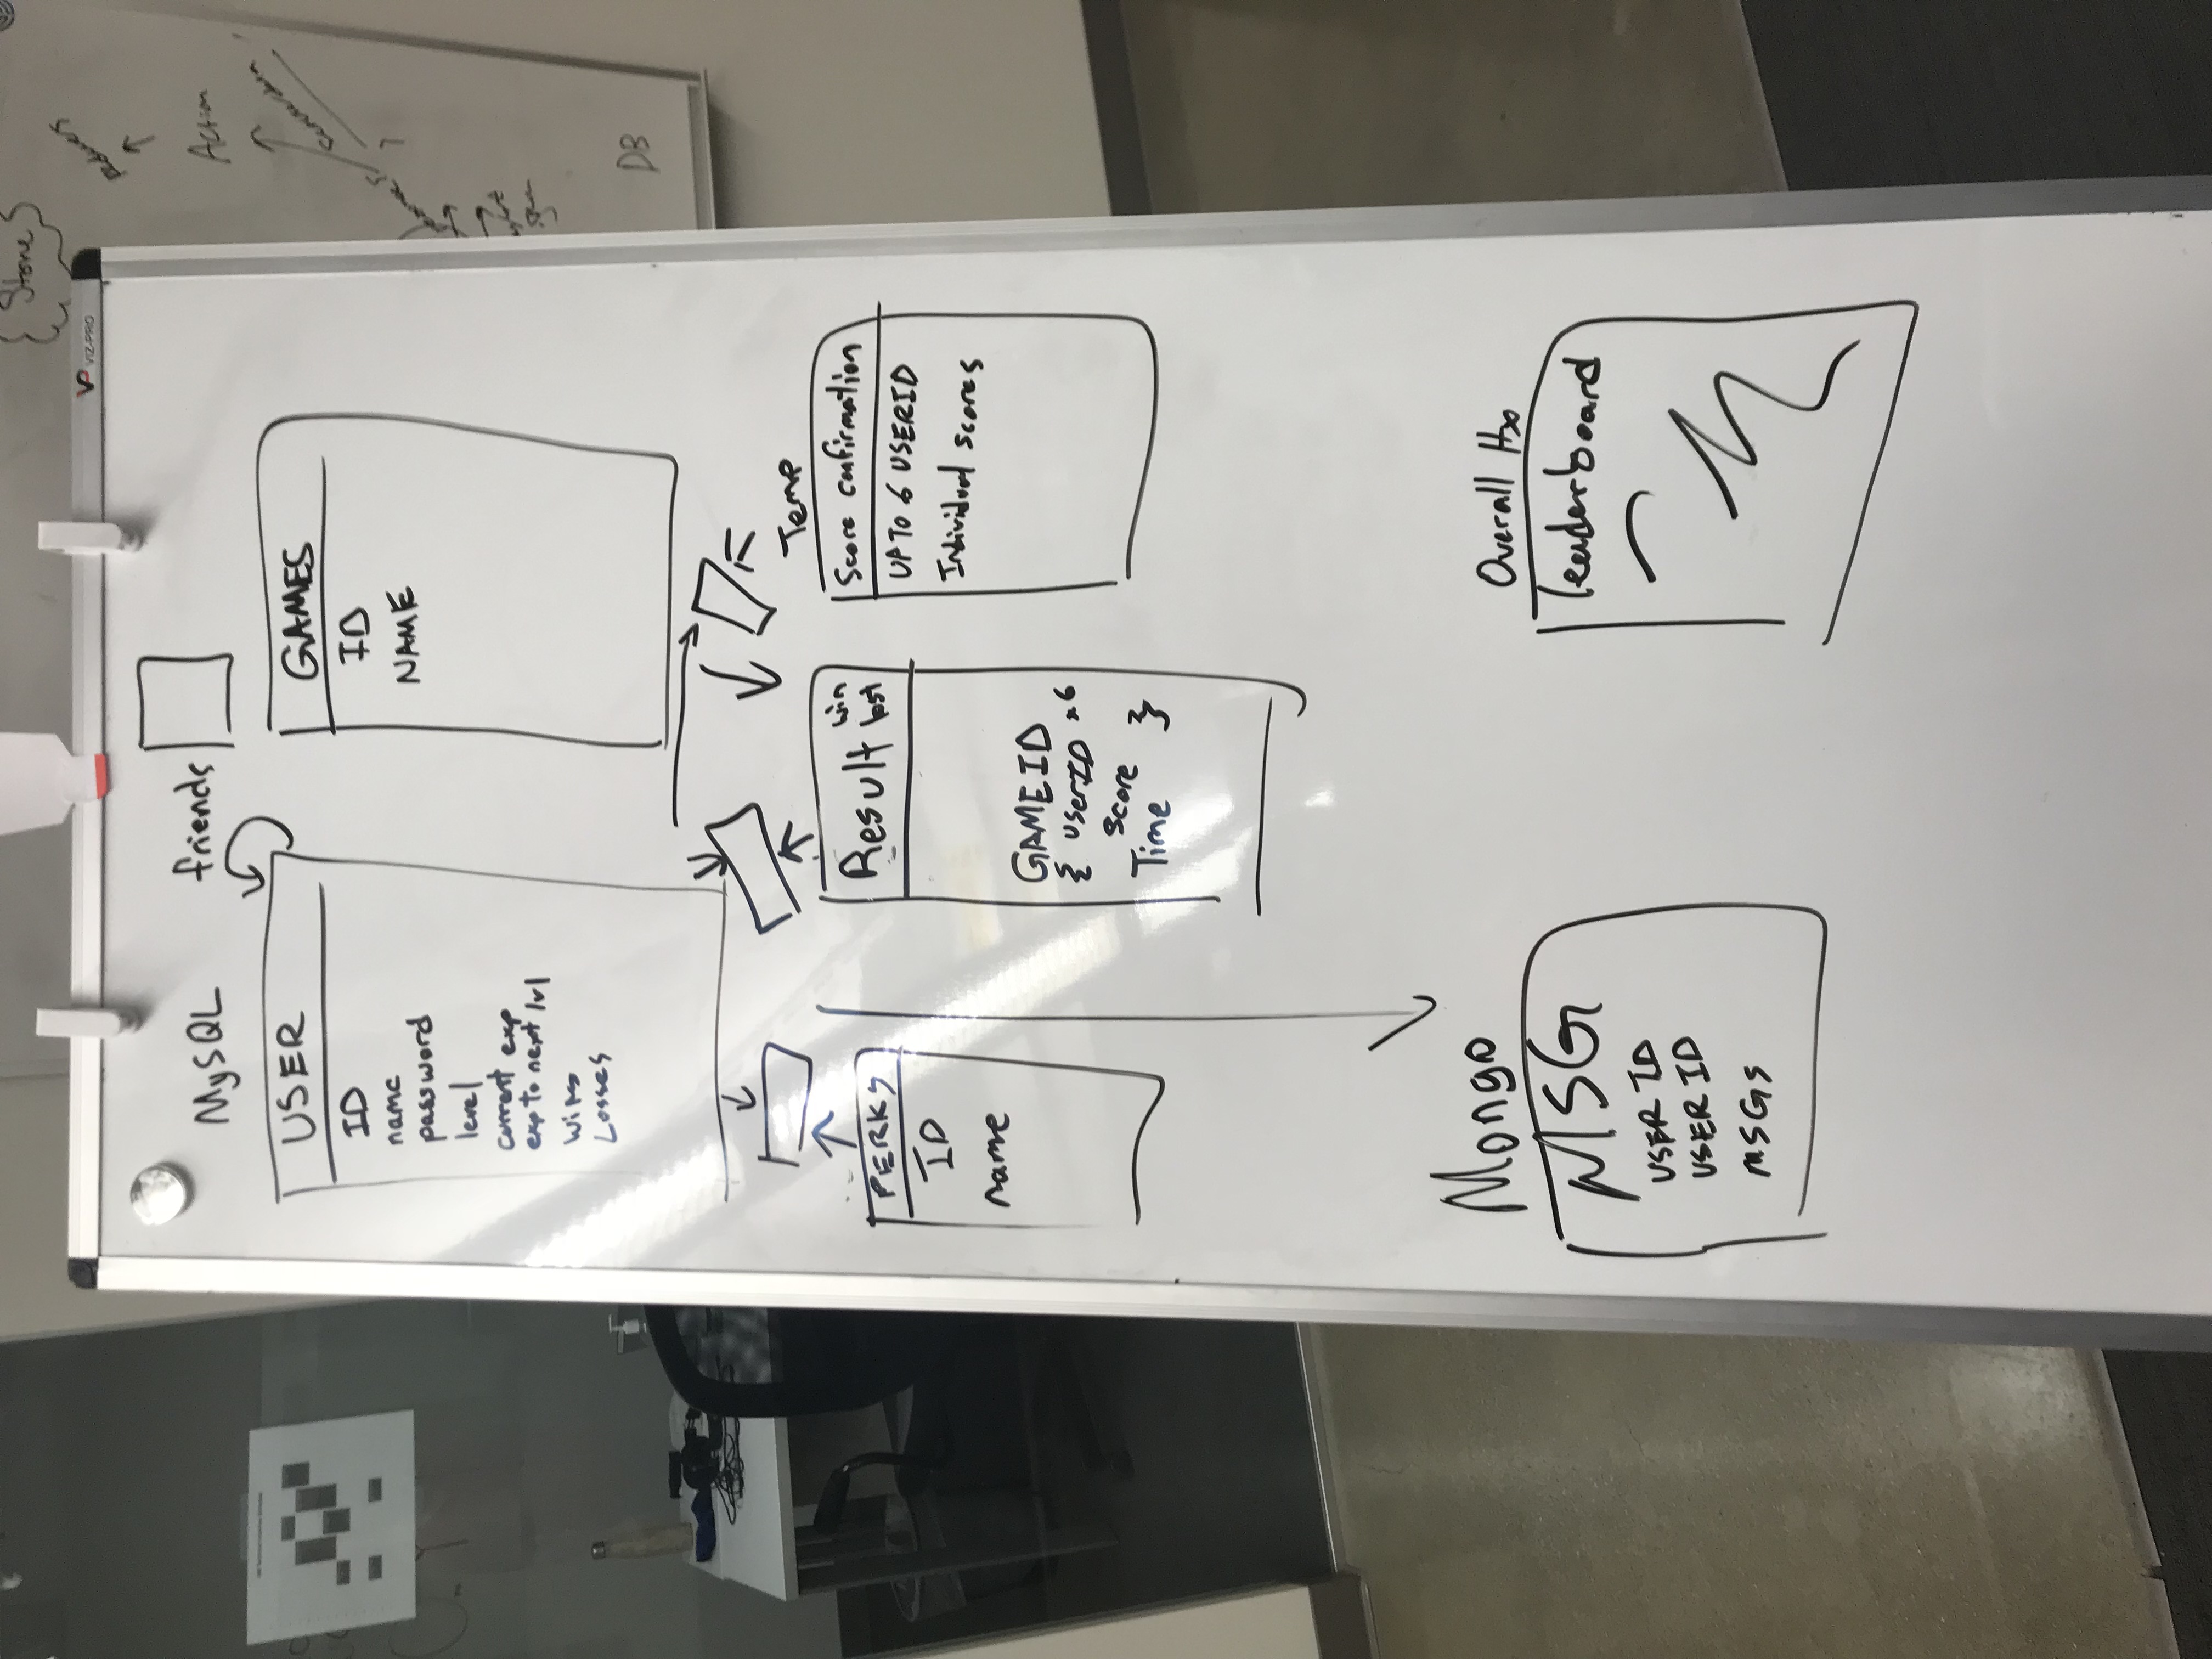 VIZ-PRO
Store
Action
DB
MySQL
friends
USER
ID
name
password
level
current exp
exp to next lvl
wins
Losses
GAMES
ID
NAME
PERKS
ID
name
Result win
lost
GAME ID
{ userID x6
score
Time }
Temp
Score confirmation
UP TO 6 USERID
Individual scores
Mongo
MSG
USER ID
USER ID
MSGs
Overall Hx
leaderboard